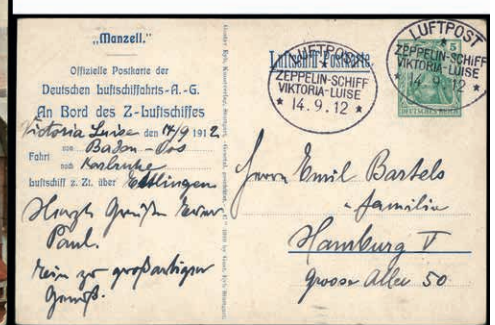 „Manzell."
Offizielle Postkarte der
Deutschen Luftschiffahrts-A.-G.
An Bord des Z-Luftschiffes
Victoria Luise den 14/9 1912
Fahrt von Baden-Oos
nach Karlsruhe
Luftschiff z. Zt. über Ettlingen
Herzl. Grüße Euer
Paul.
Rein zu großartiger
Genuß.
Luftschiff-Postkarte.
LUFTPOST
ZEPPELIN-SCHIFF
VIKTORIA-LUISE
* 14.9.12 *
LUFTPOST
ZEPPELIN-SCHIFF
VIKTORIA-LUISE
* 14.9.12 *
5
DEUTSCHES REICH
Herrn Emil Bartels
u. Familie
Hamburg V
Grosse Allee 50.